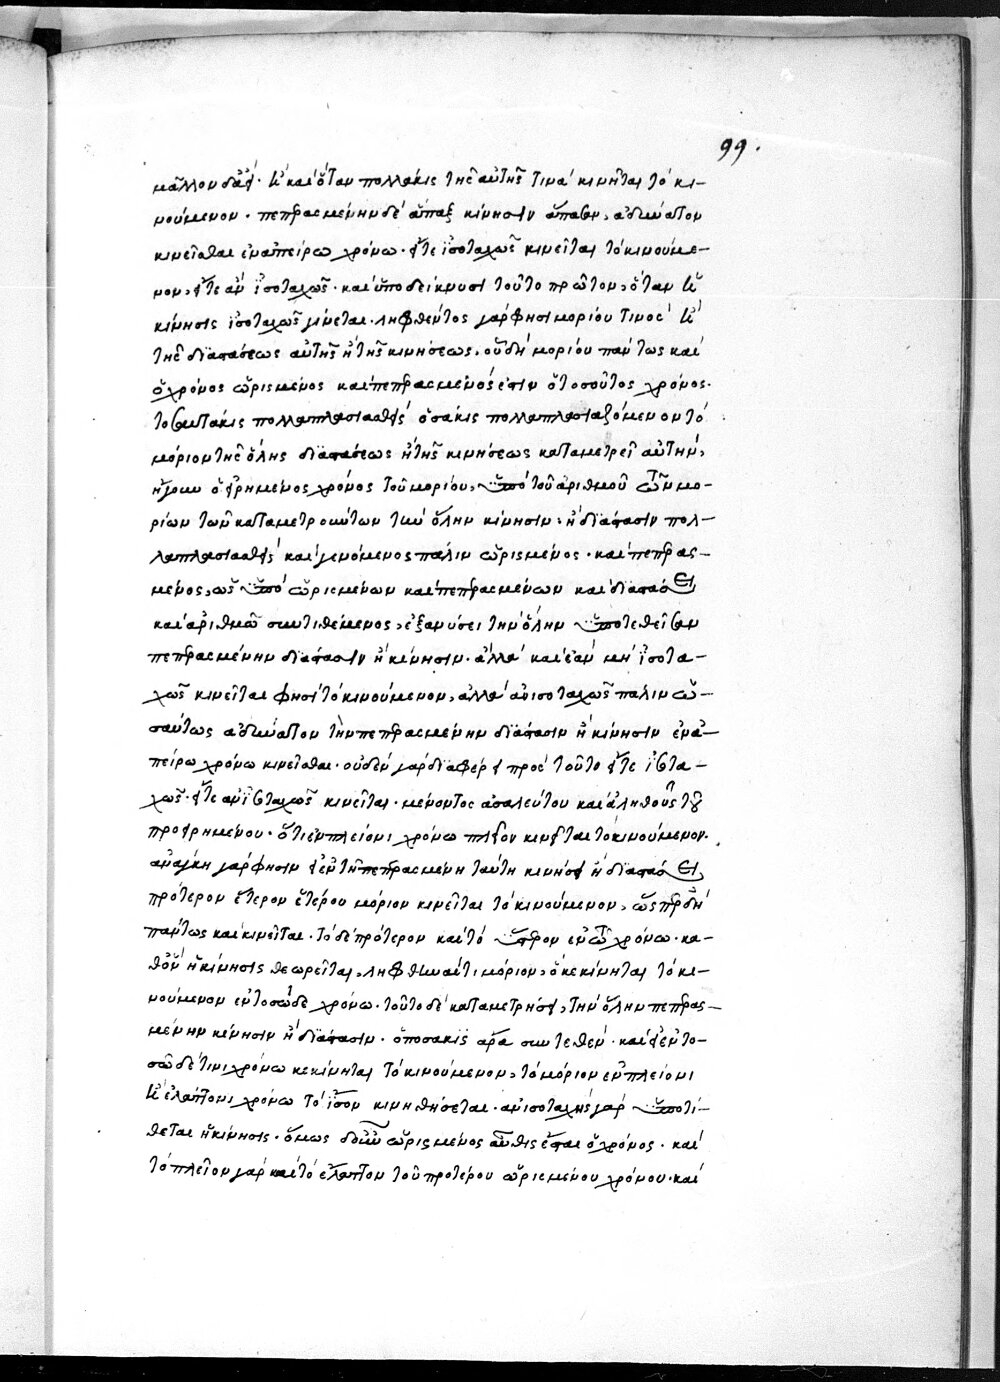 99.
μᾶλλον δὲ εἰ καὶ ὅταν πολλάκις τῆς αὐτῆς τινὰ κινῆται τὸ κι-
νούμενον. πεπερασμένην δὲ ἅπαξ κίνησιν ἅπασαν, ἀδύνατον
κινεῖσθαι ἐν ἀπείρω χρόνω. εἴτε ἰσοταχῶς κινεῖται τὸ κινούμε-
νον, εἴτε ἀνϊσοταχῶς. καὶ ὑποδείκνυσι τοῦτο πρῶτον, ὅταν ἡ
κίνησις ἰσοταχῶς γίνεται. ληφθέντος γάρ φησι μορίου τινὸς ἢ
τῆς διαστάσεως αὐτῆς ἢ τῆς κινήσεως, οὗ δὴ μορίου πάντως καὶ
ὁ χρόνος ὡρισμένος καὶ πεπερασμένος ἐστὶν ὁ τοσοῦτος χρόνος.
τοσαυτάκις πολλαπλασιασθεὶς ὁσάκις πολλαπλασιαζόμενον τὸ
μόριον τῆς ὅλης διαστάσεως ἢ τῆς κινήσεως καταμετρεῖ αὐτήν,
ἤγουν ὁ εἰρημένος χρόνος τοῦ μορίου, ὑπὸ τοῦ ἀριθμοῦ τῶν μο-
ρίων τῶν καταμετρούντων τὴν ὅλην κίνησιν, ἢ διάστασιν πολ-
λαπλασιασθεὶς καὶ γενόμενος πάλιν ὡρισμένος. καὶ πεπερασ-
μένος, ὡς ὑπὸ ὡρισμένων καὶ πεπερασμένων καὶ διαστάσει
καὶ ἀριθμῶ συντιθέμενος, ἐξανύσει τὴν ὅλην ὑποτεθεῖσαν
πεπερασμένην διάστασιν ἢ κίνησιν. ἀλλὰ καὶ ἐὰν μὴ ἰσοτα-
χῶς κινεῖται φησὶ τὸ κινούμενον, ἀλλὰ ἀνισοταχῶς πάλιν ὡ-
σαύτως ἀδύνατον τὴν πεπερασμένην διάστασιν ἢ κίνησιν ἐν ἀ-
πείρω χρόνω κινεῖσθαι. οὐδὲν γὰρ διαφέρει πρὸς τοῦτο εἴτε ἰσοτα-
χῶς. εἴτε ἀνϊσοταχῶς κινεῖται. μένοντος ἀσαλεύτου καὶ ἀληθοῦς τοῦ
προειρημένου. ὅτι ἐν πλείονι χρόνω πλεῖον κινεῖται τὸ κινούμενον.
ἀνάγκη γάρ φησιν εἰ ἐν τῆ πεπερασμένη ταύτη κινήσει ἢ διαστάσει
πρότερον ἕτερον ἑτέρου μόριον κινεῖται τὸ κινούμενον, ὥσπερ δὴ
πάντως καὶ κινεῖται. τὸ δὲ πρότερον καὶ τὸ ὕστερον ἐν τῶ χρόνω. κα-
θ' ὃν ἡ κίνησις θεωρεῖται, ληφθῆναί τι μόριον, ὃ κεκίνηται τὸ κι-
νούμενον ἐν τοσῶδε χρόνω. τοῦτο δὲ καταμετρήσει, τὴν ὅλην πεπερασ-
μένην κίνησιν ἢ διάστασιν. ὁποσάκις ἄρα συντεθέν. καὶ εἰ ἐν το-
σῶδέ τινι χρόνω κεκίνηται τὸ κινούμενον, τὸ μόριον ἐν πλείονι
ἢ ἐλάττονι χρόνω τὸ ἴσον κινηθήσεται. ἀνισοταχὴς γὰρ ὑποτί-
θεται ἡ κίνησις. ὅμως δ' οὖν ὡρισμένος αὖθις ἔσται ὁ χρόνος. καὶ
τὸ πλεῖον γὰρ καὶ τὸ ἔλαττον τοῦ προτέρου ὡρισμένου χρόνου. καὶ